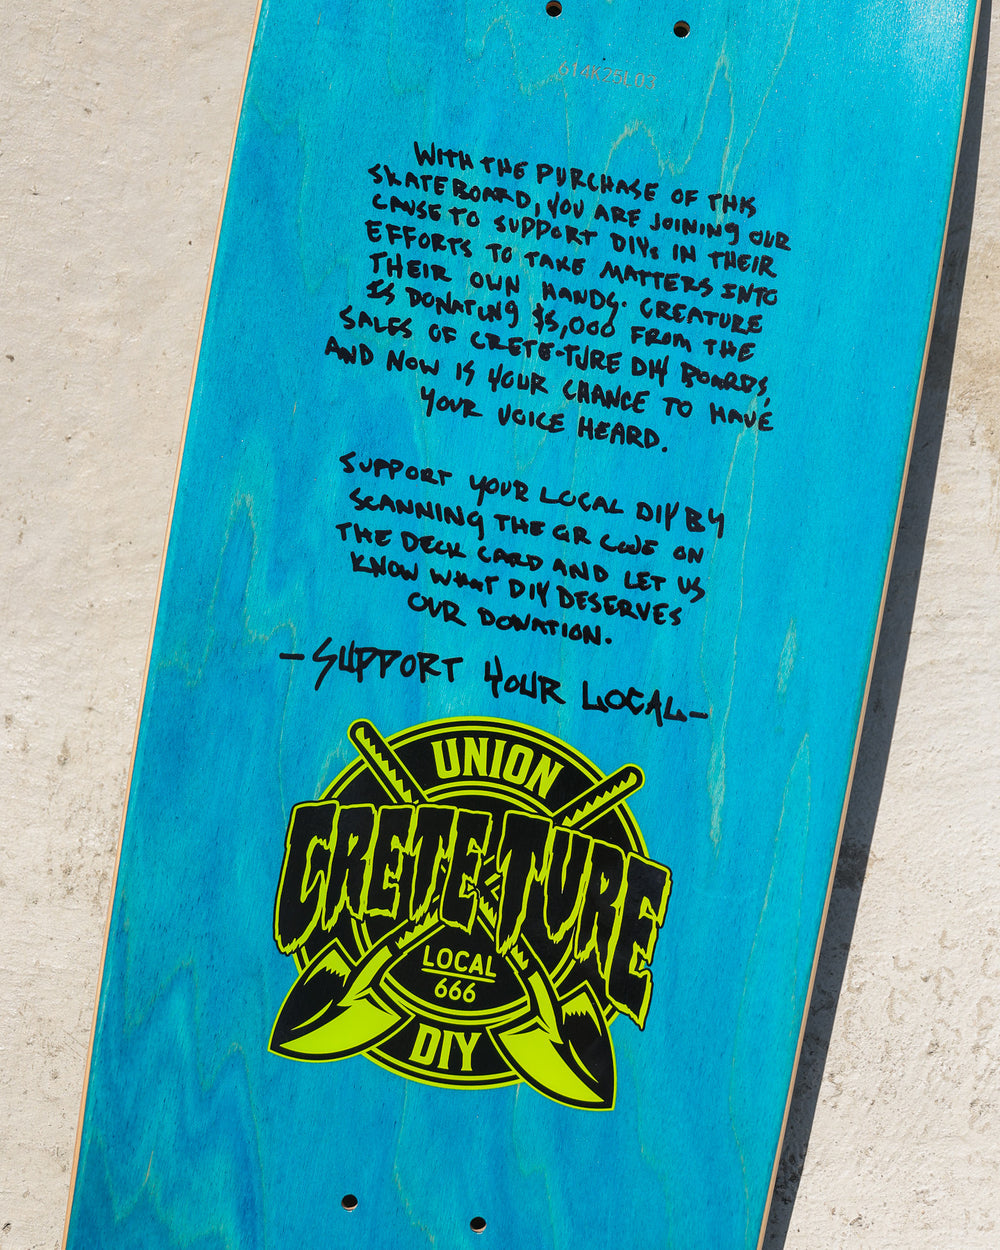 614K25L03
WITH THE PURCHASE OF THIS
SKATEBOARD, YOU ARE JOINING OUR
CAUSE TO SUPPORT DIYs IN THEIR
EFFORTS TO TAKE MATTERS INTO
THEIR OWN HANDS. CREATURE
IS DONATING $5,000 FROM THE
SALES OF CRETE-TURE DIY BOARDS,
AND NOW IS YOUR CHANCE TO HAVE
YOUR VOICE HEARD.
SUPPORT YOUR LOCAL DIY BY
SCANNING THE QR CODE ON
THE DECK CARD AND LET US
KNOW WHAT DIY DESERVES
OUR DONATION.
—SUPPORT YOUR LOCAL—
UNION
CRETE-TURE
LOCAL
666
DIY